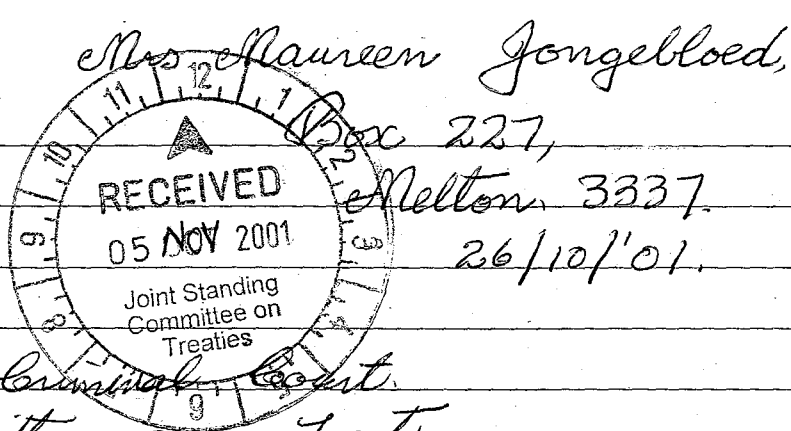 Mrs Maureen Jongebloed,
Box 227,
Melton. 3337.
26/10/'01.
12
11 1
10 2
RECEIVED
9 05 NOV 2001 3
Joint Standing
Committee on
Treaties
8 4
6
Criminal Court.